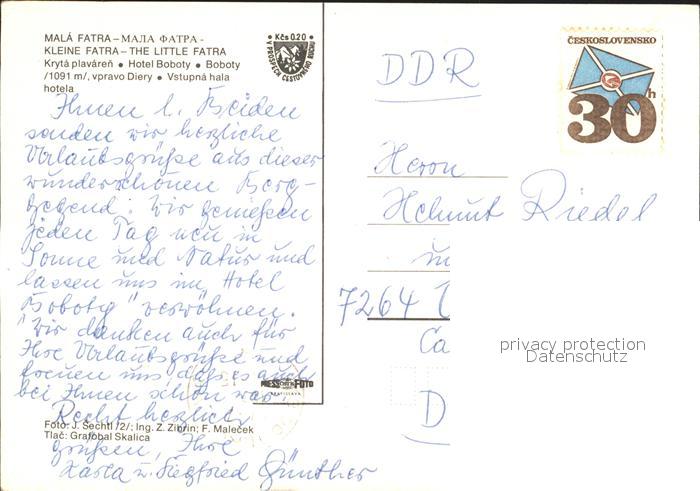 MALÁ FATRA – МАЛА ФАТРА -
KLEINE FATRA – THE LITTLE FATRA
Krytá plaváreň • Hotel Boboty • Boboty
/1091 m/, vpravo Diery • Vstupná hala
hotela
Kčs 0.20
V PROSPECH CESTOVNÉHO RUCHU
ČESKOSLOVENSKO
30h
Ihnen l. Beiden
senden wir herzliche
Urlaubsgrüße aus dieser
wunderschönen Berg-
gegend. Wir genießen
jeden Tag neu in
Sonne und Natur und
lassen uns im „Hotel
Boboty" verwöhnen.
Wir danken auch für
Ihre Urlaubsgrüße und
freuen uns daß es auch
bei Ihnen schön war.
Recht herzlich
grüßen, Ihre
Karla u. Siegfried Günther
PRESSFOTO
BRATISLAVA
Foto: J. Šechtl /2/; Ing. Z. Zibrin; F. Maleček
Tlač: Grafobal Skalica
DDR
Herrn
Helmut Riedel
7264
Ca
D
privacy protection
Datenschutz